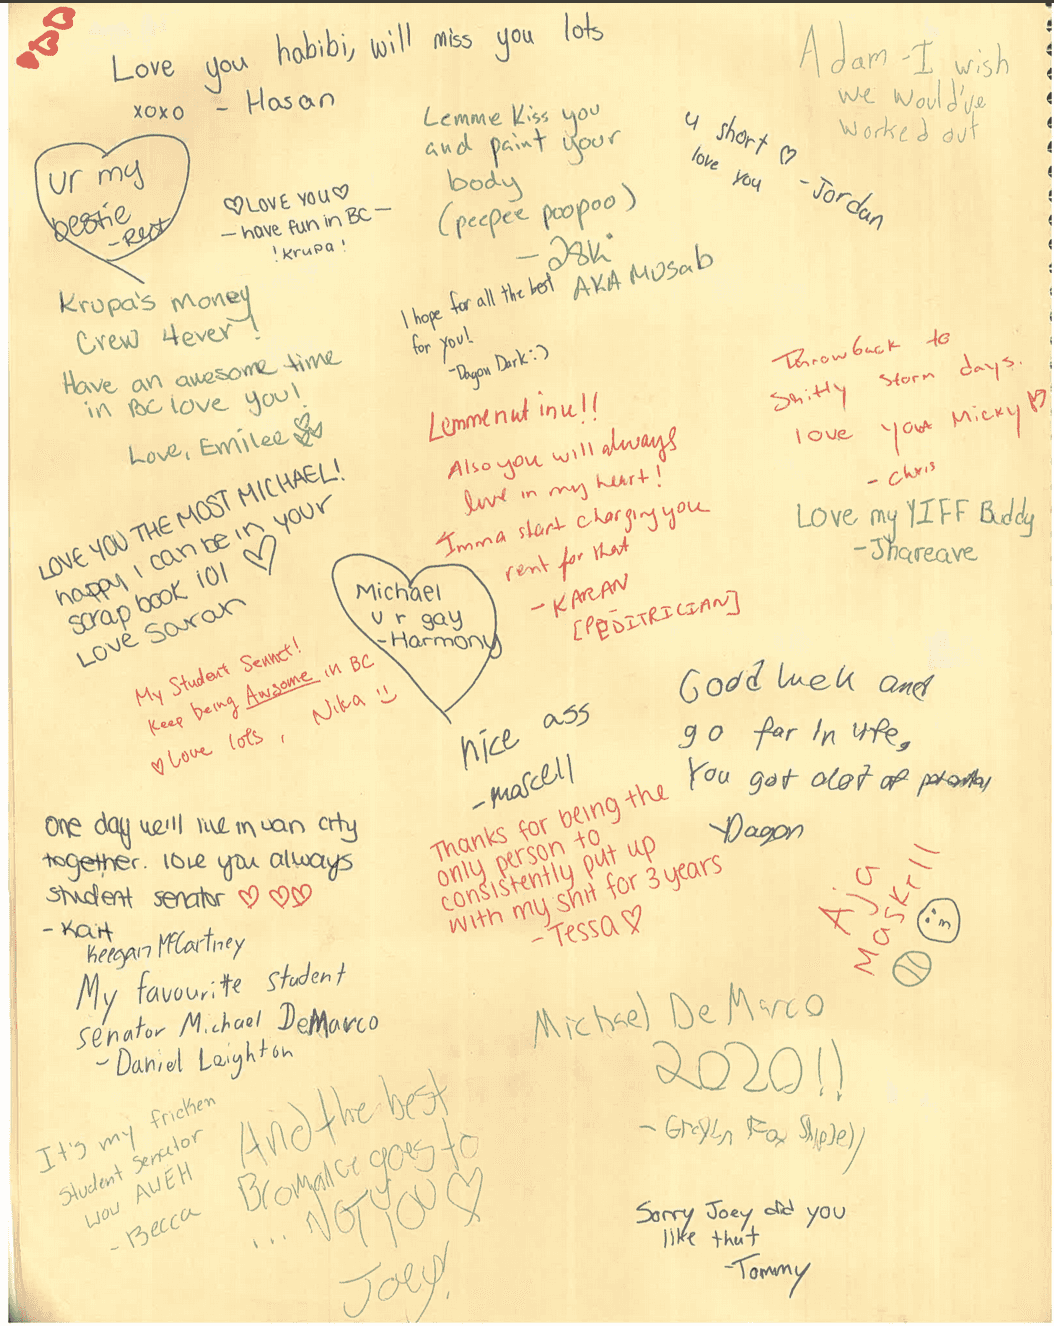 Love you habibi, will miss you lots
xoxo - Hasan
Adam - I wish
we would've
worked out
Lemme Kiss you
and paint your
body
(peepee poopoo)
- 28K
AKA MUSab
u short ♡
love you - Jordan
ur my
bestie
♡LOVE YOU♡
- have fun in BC -
! Krupa !
Krupa's money
Crew 4ever!
Have an awesome time
in BC love you!
Love, Emilee
I hope for all the best
for you!
- Dagon Dark :)
Throwback to
Shitty storm days.
love you Micky ♡
- Chris
Lemme nut in u!!
Also you will always
live in my heart!
Imma start charging you
rent for that
- KARAN
[PEDITRICIAN]
Love my YIFF Buddy
- Jhareave
LOVE YOU THE MOST MICHAEL!
happy I can be in your
scrap book lol ♡
Love Sarah
Michael
u r gay
- Harmony
My Student Sennet!
Keep being Awsome in BC
♡Love lots, Nika
nice ass
- marcell
Good luck and
go far in life,
You got alot of
- Dagon
One day we'll live in van city
together. love you always
student senator ♡ ♡♡
- Kait
Keegan McCartney
Thanks for being the
only person to
consistently put up
with my shit for 3 years
- Tessa ♡
Aja
Maskrill
My favourite student
senator Michael DeMarco
- Daniel Leighton
Michael DeMarco
2020!!
- Fox
It's my fricken
Student Senator
wow AWEH
- Becca
And the best
Bromance goes to
... NOT YOU ♡
Joey!
Sorry Joey did you
like that
- Tommy